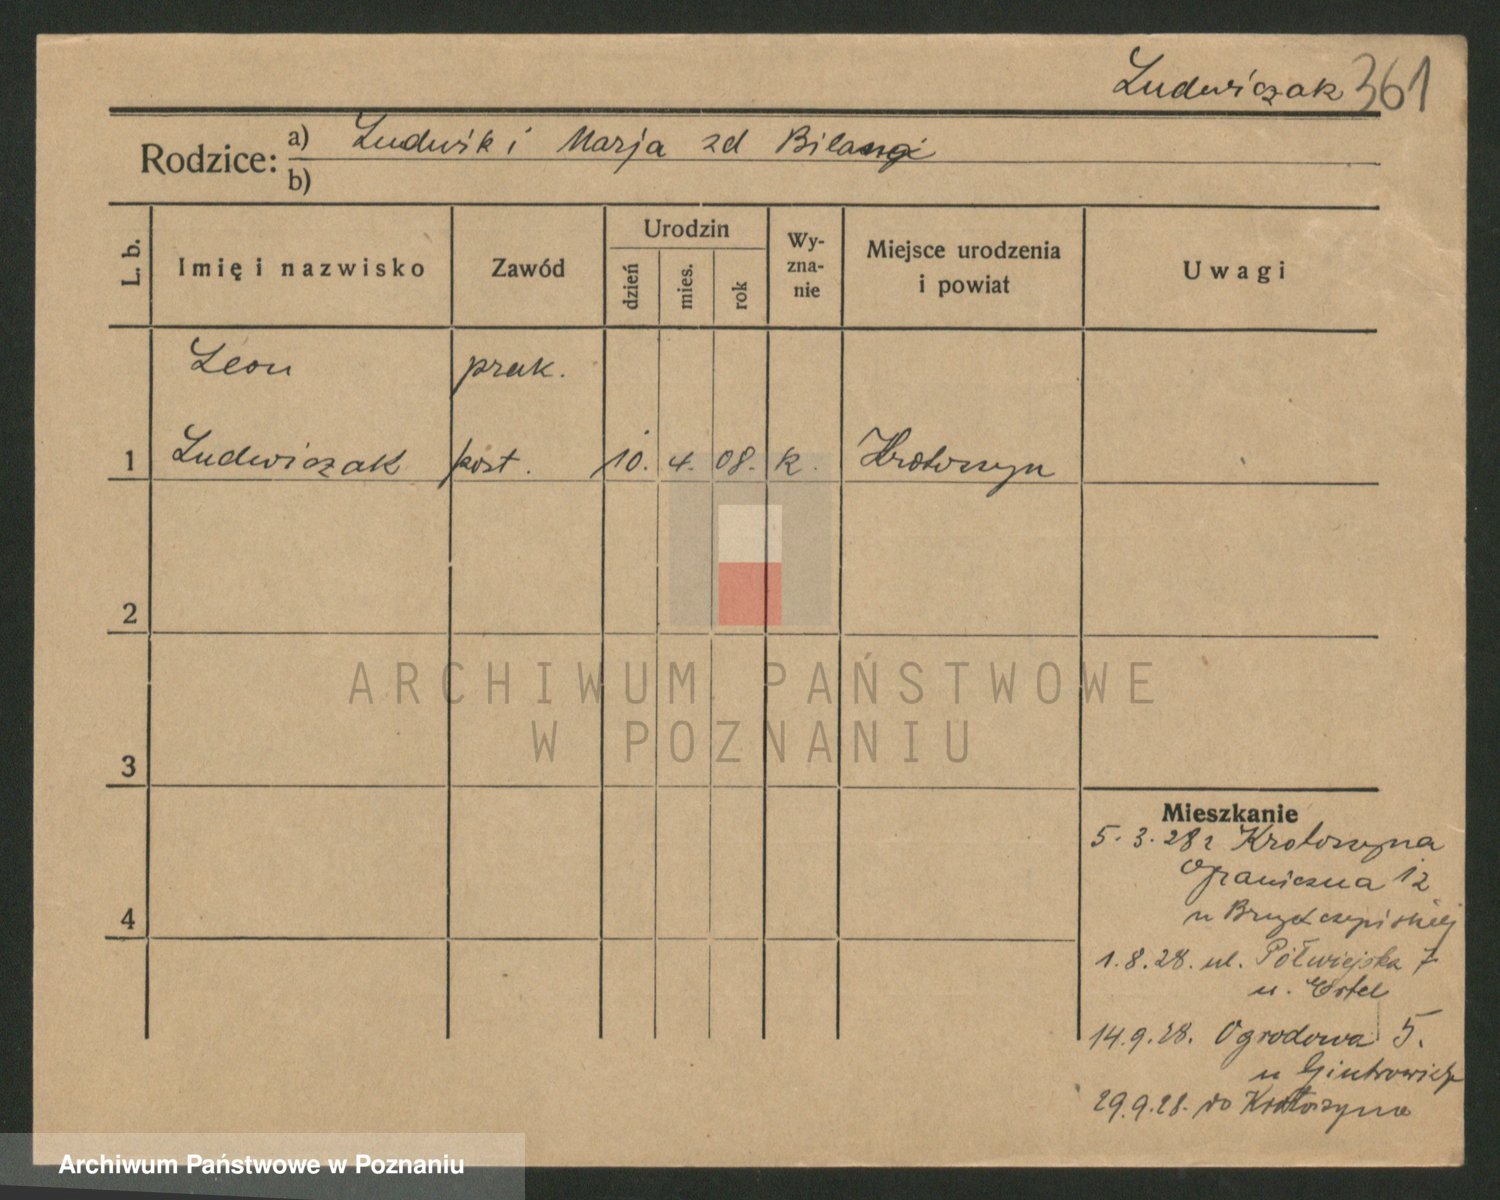 Ludwiczak 361
Rodzice: a) Ludwik i Marja zd
b)
L. b.
Imię i nazwisko
Zawód
Urodzin
dzień
mies.
rok
Wy-
zna-
nie
Miejsce urodzenia
i powiat
Uwagi
Leon prak.
1 Ludwiczak kost. 10. 4. 08. k. Krotoszyn
2
3
4
ARCHIWUM PAŃSTWOWE
W POZNANIU
Mieszkanie
5. 3. 28 z Krotoszyna
Graniczna 12
u
1. 8. 28. ul. Półwiejska 7
u. Ertel
14. 9. 28. Ogrodowa 5.
u
29. 9. 28. do Krotoszyna
Archiwum Państwowe w Poznaniu